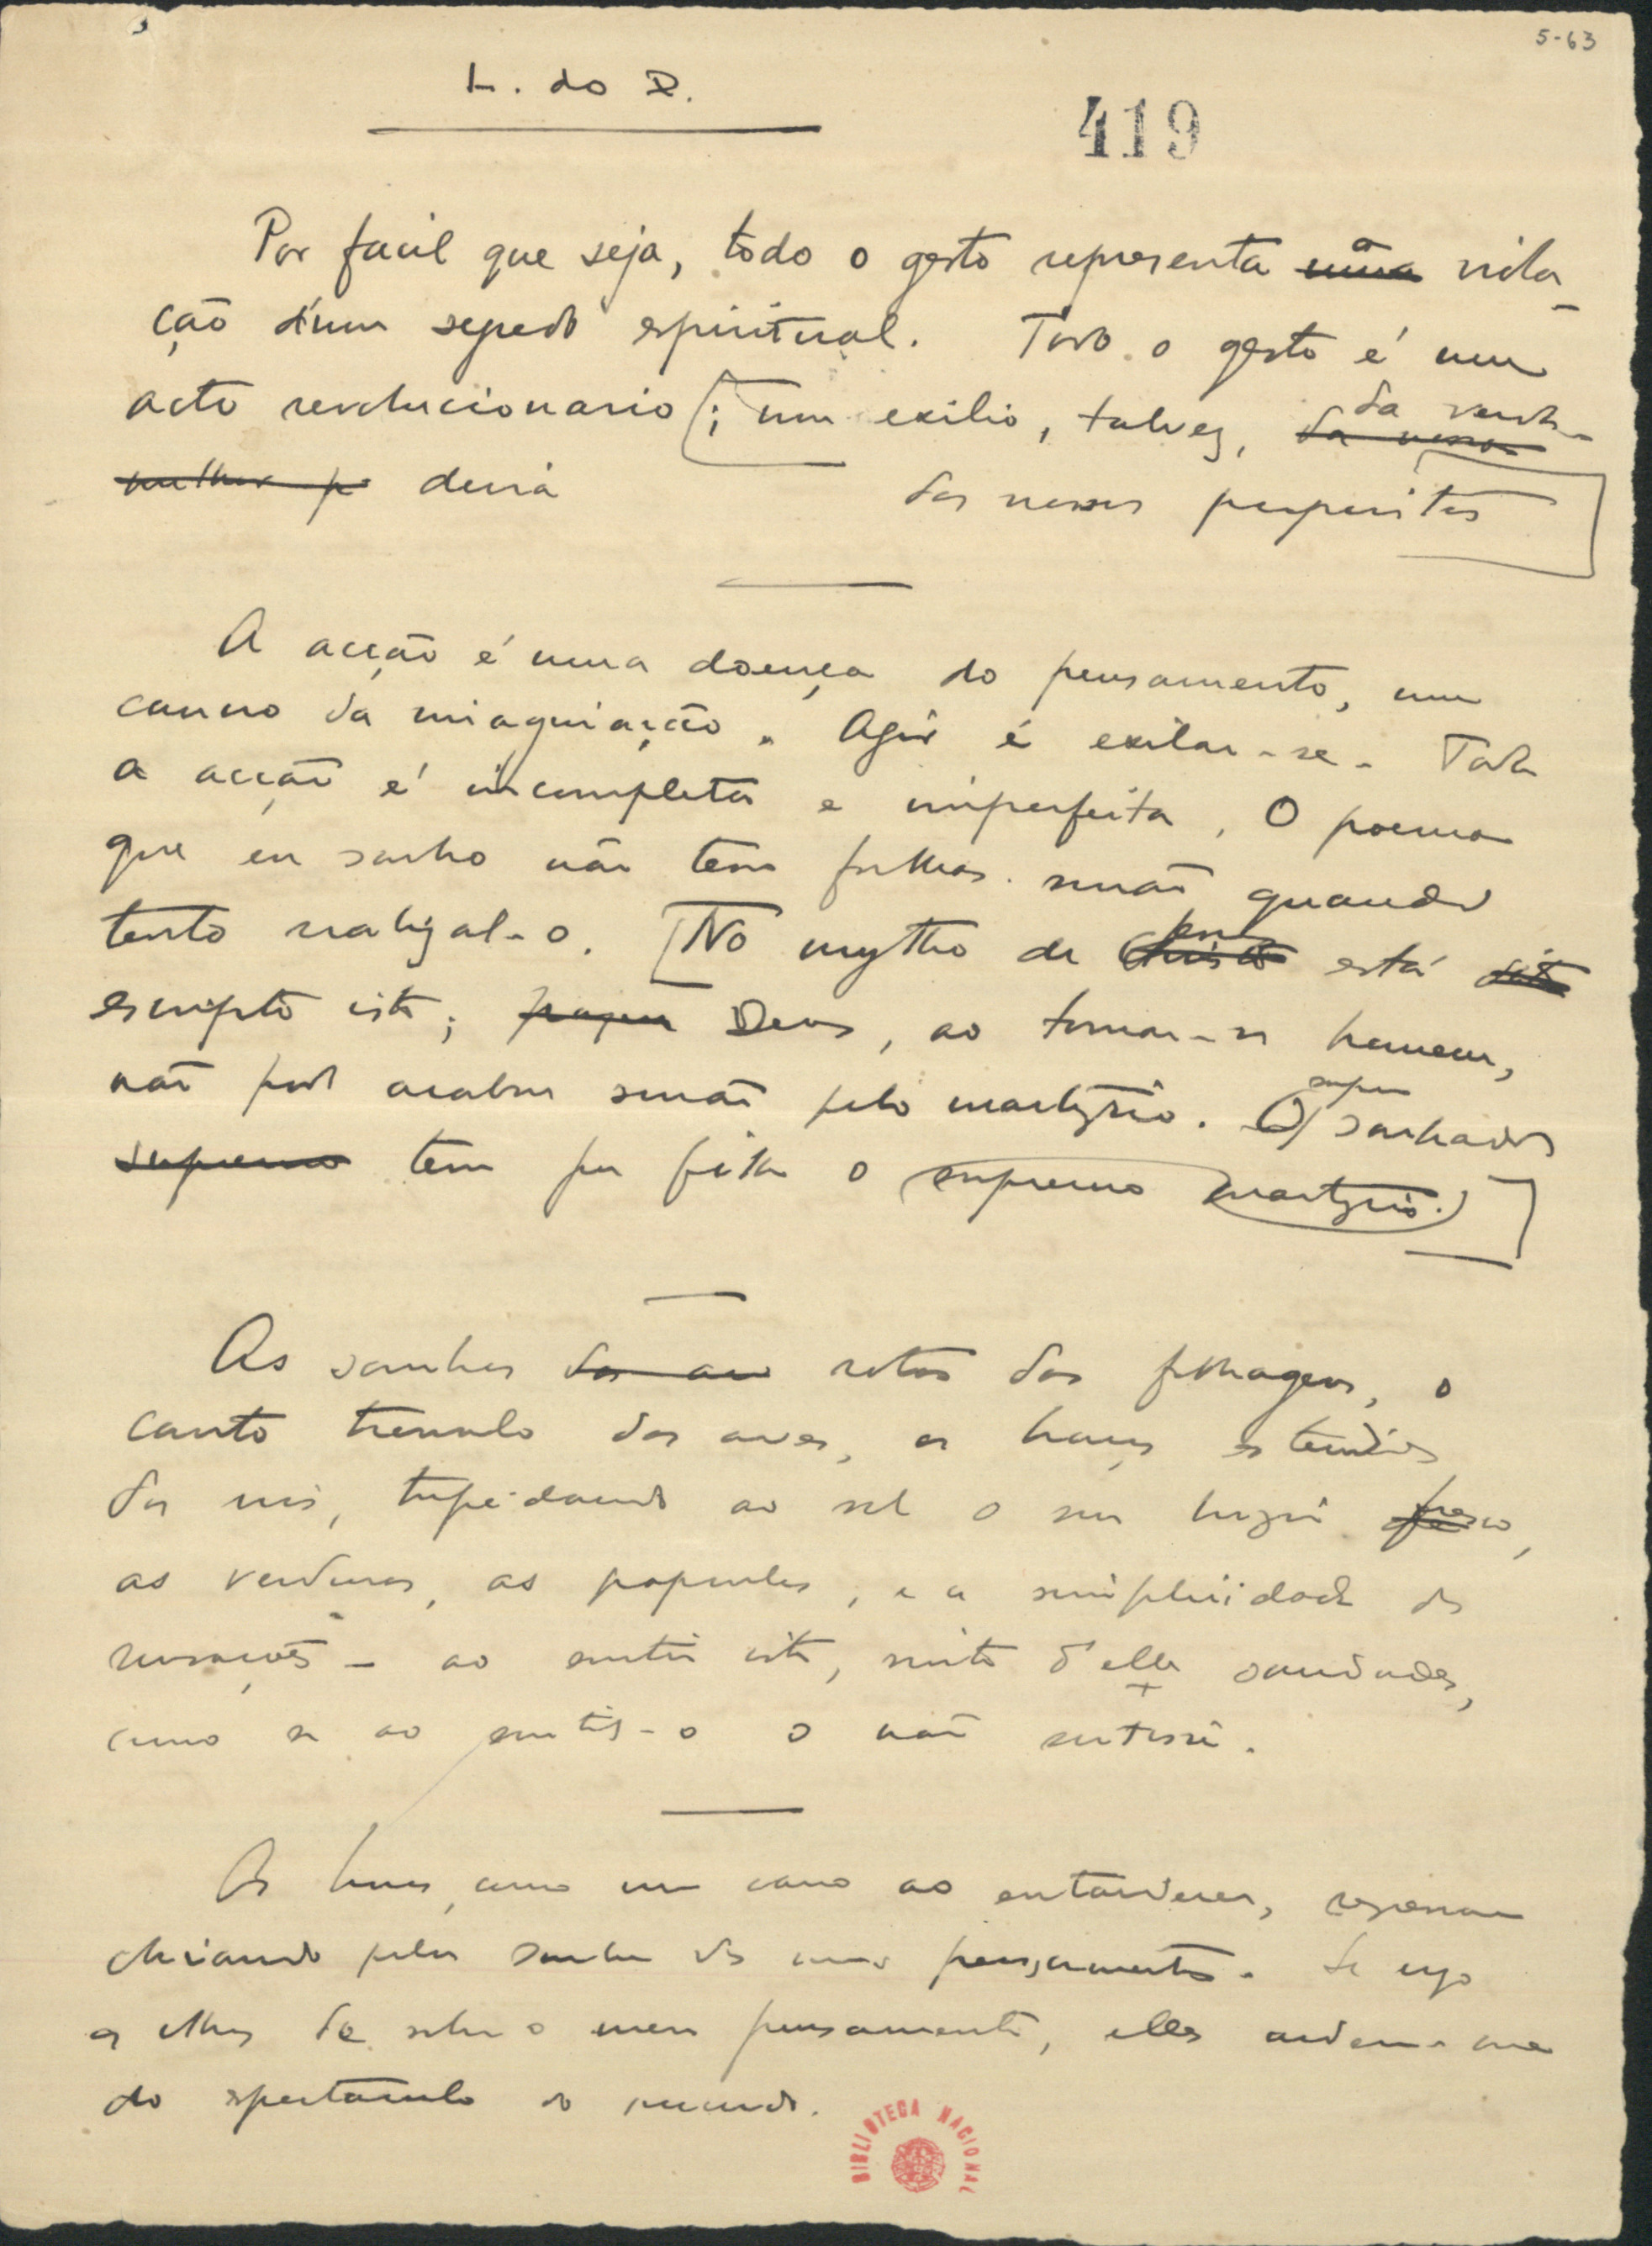 5-63
L. do D.
419
Por facil que seja, todo o gesto representa a viola-
ção d'um segredo espiritual. Todo o gesto é um
acto revolucionario; um exilio, talvez, da verda-
de dos nossos propositos
A acção é uma doença do pensamento, um
cancro da imaginação. Agir é exilar-se. Toda
a acção é incompleta e imperfeita. O poema
que eu sonho não tem falhas senão quando
tento realizal-o. [No mytho de Jesus está
escripto isto; Deus, ao tornar-se homem,
não pode acabar senão pelo martyrio. O supremo sonhador
tem por filho o supremo martyrio.]
As sombras rotas das folhagens, o
canto tremulo das aves, os braços estendidos
dos rios, trepidando ao sol o seu luzir fresco,
as verduras, as papoulas, e a simplicidade das
sensações - ao sentir isto, sinto d'elle saudades,
como se ao sentil-o o não sentisse.
As horas, como um carro ao entardecer, regressam
chiando pelas sombras dos meus pensamentos. Se ergo
os olhos de sobre o meu pensamento, elles ardem-me
do espectaculo do mundo.
BIBLIOTECA NACIONAL